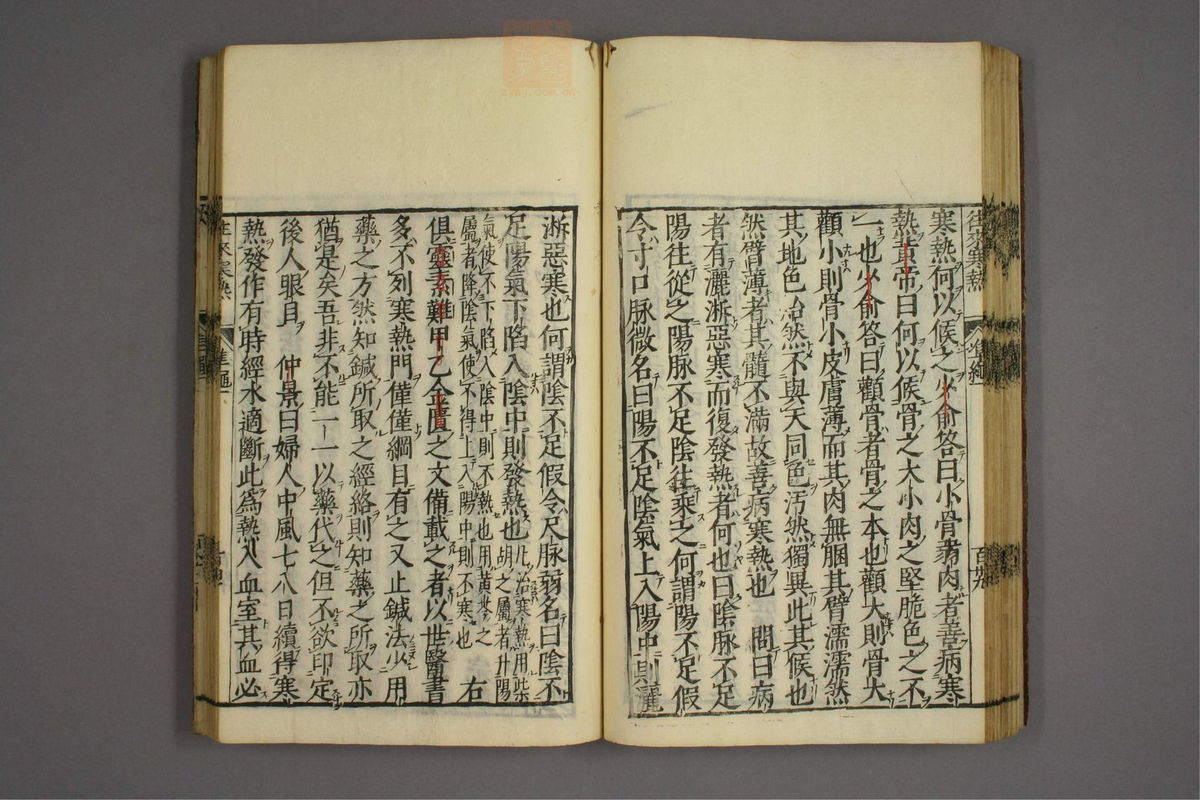 往來寒熱 準繩
寒熱何以候之少俞答曰小骨弱肉者善病寒
熱黃帝曰何以候骨之大小肉之堅脆色之不
一也少俞答曰顴骨者骨之本也顴大則骨大
顴小則骨小皮膚薄而其肉無䐃其臂濡濡然
其地色殆然不與天同色汚然獨異此其候也
然臂薄者其髓不滿故善病寒熱也 問曰病
者有灑淅惡寒而復發熱者何也曰陰脉不足
陽往從之陽脉不足陰往乘之何謂陽不足假
令寸口脉微名曰陽不足陰氣上入陽中則灑
淅惡寒也何謂陰不足假令尺脉弱名曰陰不
足陽氣下陷入陰中則發熱也凡治寒熱用柴胡之屬者升陽
氣使不下陷入陰中則不熱也用黃芩之屬者降陰氣使不得上入陽中則不寒也 右
俱靈素難甲乙金匱之文備載之者以世醫書
多不列寒熱門僅僅綱目有之又止鍼法少用
藥之方然知鍼所取之經絡則知藥之所取亦
猶是矣吾非不能一一以藥代之但不欲印定
後人眼目 仲景曰婦人中風七八日續得寒
熱發作有時經水適斷此爲熱入血室其血必
往來寒熱 準繩